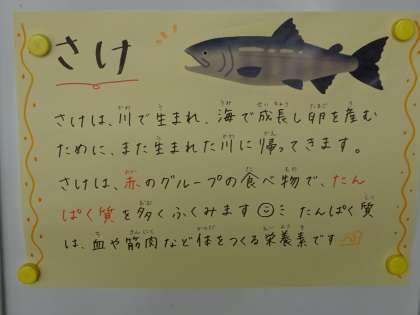 さけ
さけは、川で生まれ、海で成長し卵を産む
ために、また生まれた川に帰ってきます。
さけは、赤のグループの食べ物で、たん
ぱく質を多くふくみます たんぱく質
は、血や筋肉など体をつくる栄養素です